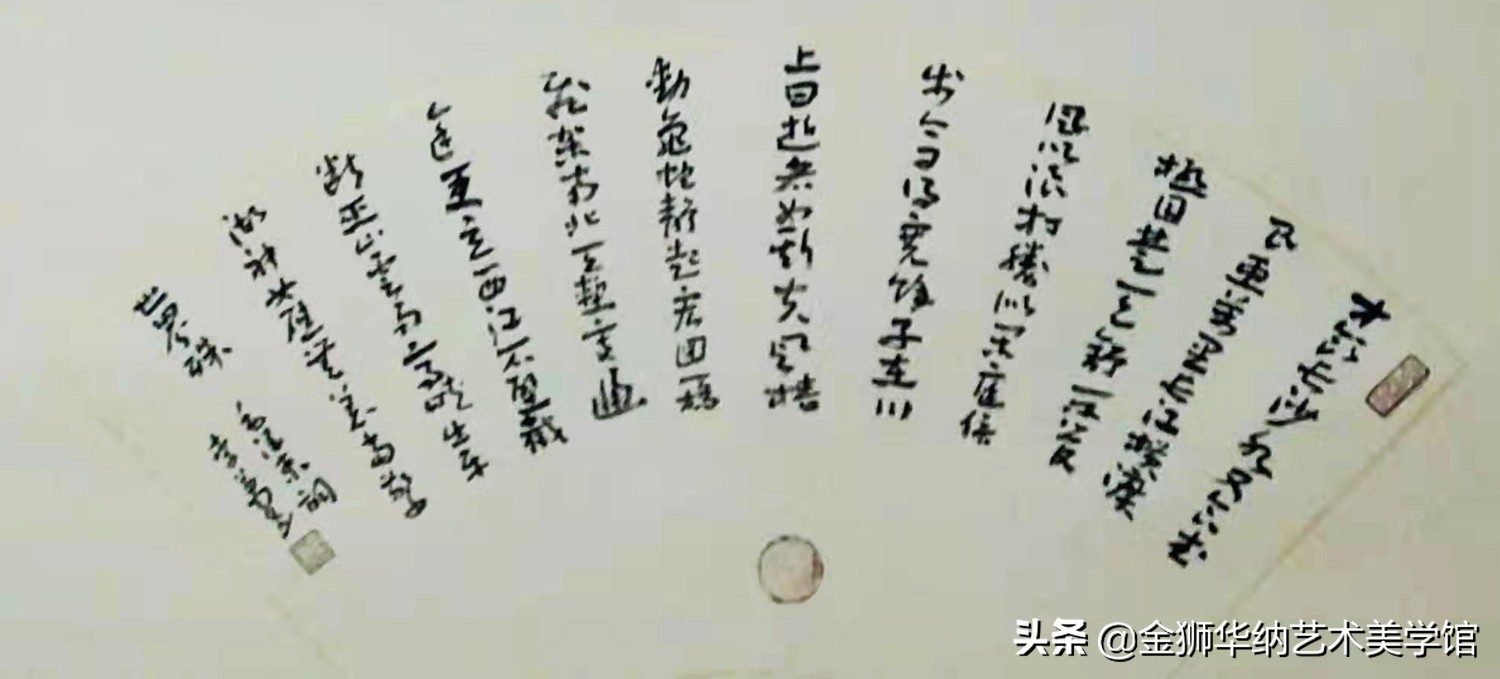 才饮长沙水又食武
昌魚万里长江横渡
极目楚天舒不管
风吹浪打勝似闲庭信
步今日得宽馀子在川
上曰逝者如斯夫风樯
動龜蛇静起宏图一桥
飛架南北天堑变通
途更立西江石壁截
断巫山雲雨高峡出平
湖神女应无恙当驚
世界殊
毛泽东詞
头条 @金狮华纳艺术美学馆